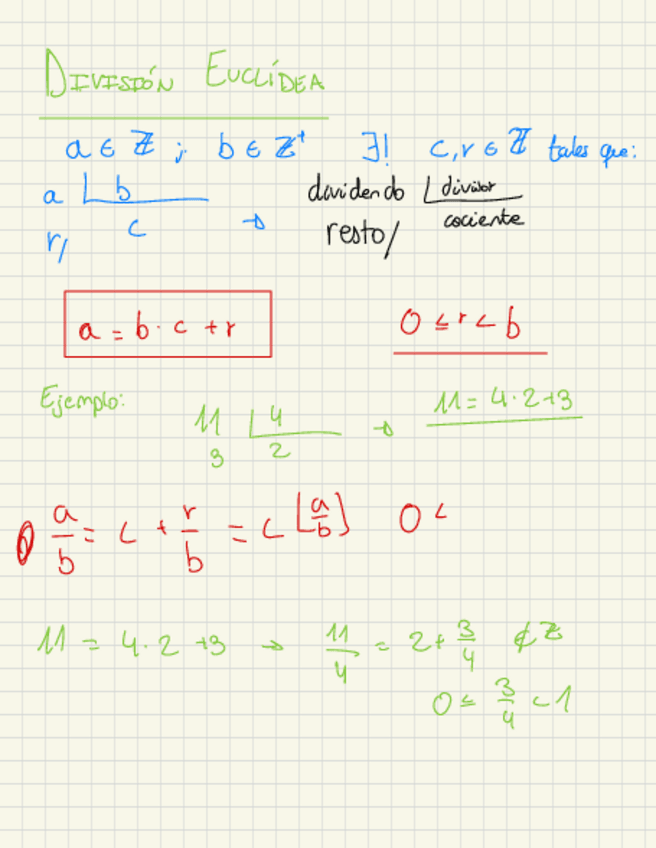 DIVISIÓN EUCLÍDEA
a ∈ ℤ ; b ∈ ℤ⁺ ∃! c, r ∈ ℤ tales que:
a |b dividendo |divisor
r/ c → resto/ cociente
a = b · c + r 0 ≤ r < b
Ejemplo: 11 |4 → 11 = 4·2+3
3 2
a/b = c + r/b = c ⌊a/b⌋ 0 <
11 = 4·2 +3 → 11/4 = 2+ 3/4 ∉ ℤ
0 ≤ 3/4 < 1